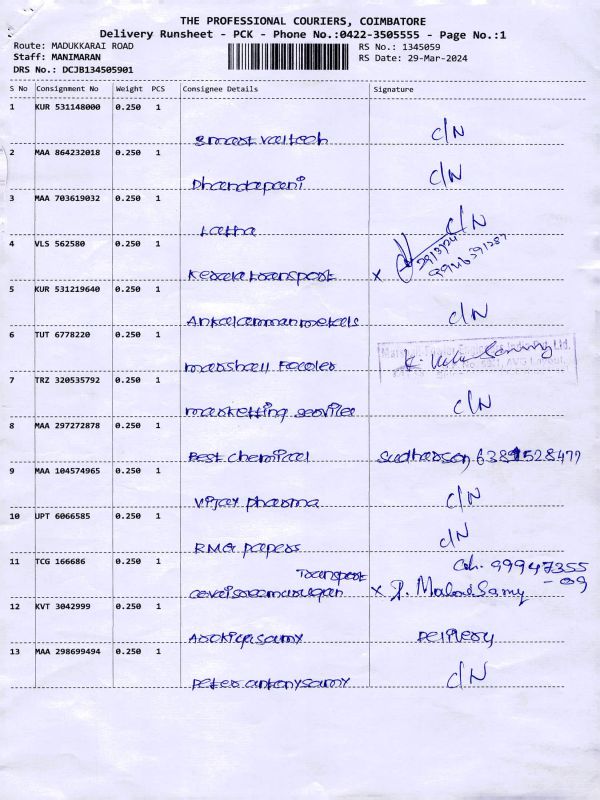 THE PROFESSIONAL COURIERS, COIMBATORE
Delivery Runsheet - PCK - Phone No.:0422-3505555 - Page No.:1
Route: MADUKKARAI ROAD RS No.: 1345059
Staff: MANIMARAN RS Date: 29-Mar-2024
DRS No.: DCJB134505901
S No Consignment No Weight PCS Consignee Details Signature
1 KUR 531148000 0.250 1
smart valtech C/N
2 MAA 864232018 0.250 1
Dhandapani C/N
3 MAA 703619032 0.250 1
Latha C/N
4 VLS 562580 0.250 1
Kerala transport x 29/3/24
9946391287
5 KUR 531219640 0.250 1
Ankalamman metals C/N
6 TUT 6778220 0.250 1
marshall
7 TRZ 320535792 0.250 1
marketting C/N
8 MAA 297272878 0.250 1
Best chemical Sudharson 6381528477
9 MAA 104574965 0.250 1
Vijay pharma C/N
10 UPT 6066585 0.250 1
RMG papers C/N
11 TCG 166686 0.250 1
Transport 99947355
x - 09
12 KVT 3042999 0.250 1
Arokiyasamy Delivery
13 MAA 298699494 0.250 1
Peter antonysamy C/N